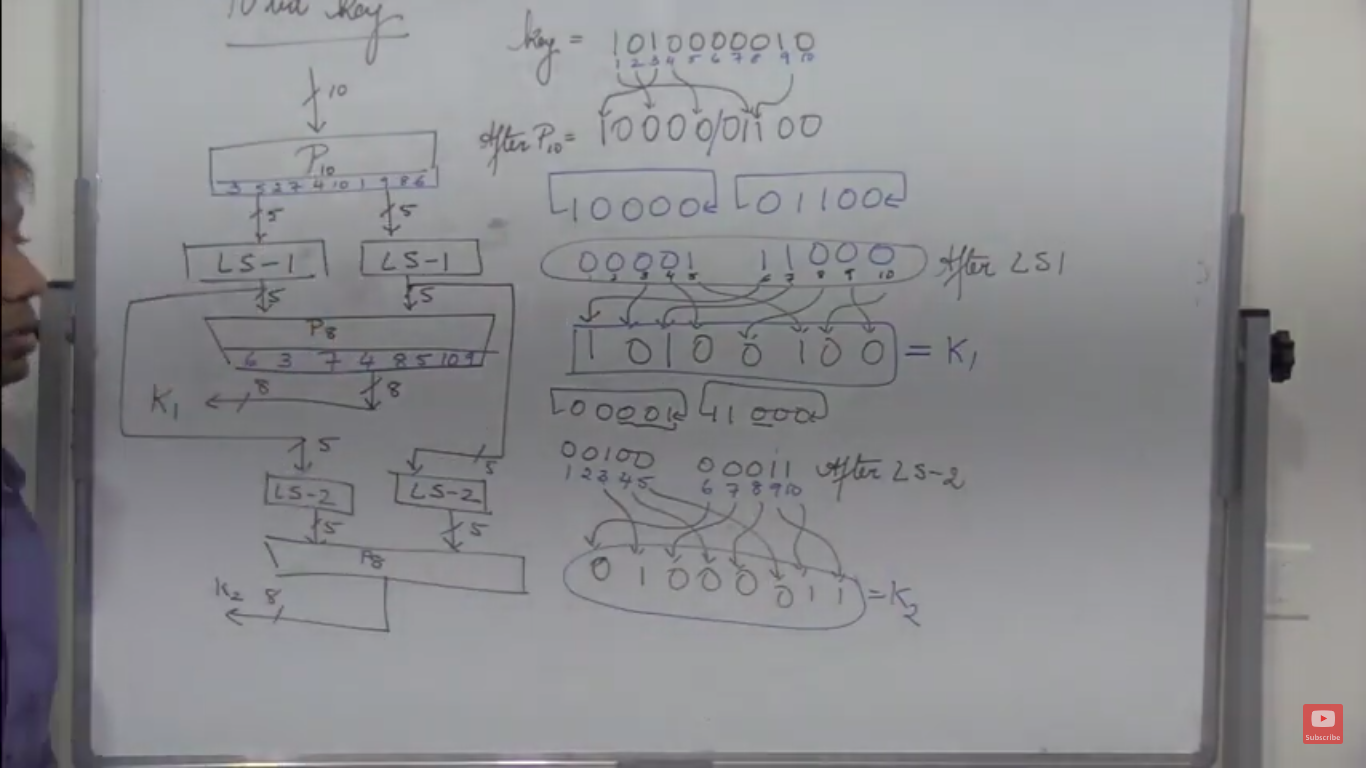 10 bit key
10
P10
3 5 2 7 4 10 1 9 8 6
5 5
LS-1 LS-1
5 5
P8
6 3 7 4 8 5 10 9
K1 8 8
5 5
LS-2 LS-2
5 5
P8
K2 8
key = 1010000010
1 2 3 4 5 6 7 8 9 10
After P10 = 10000/01100
10000 01100
00001 11000 After LS1
1 2 3 4 5 6 7 8 9 10
1 0 1 0 0 1 0 0 = K1
00001 11000
00100 00011 After LS-2
1 2 3 4 5 6 7 8 9 10
0 1 0 0 0 0 1 1 = K2
Subscribe